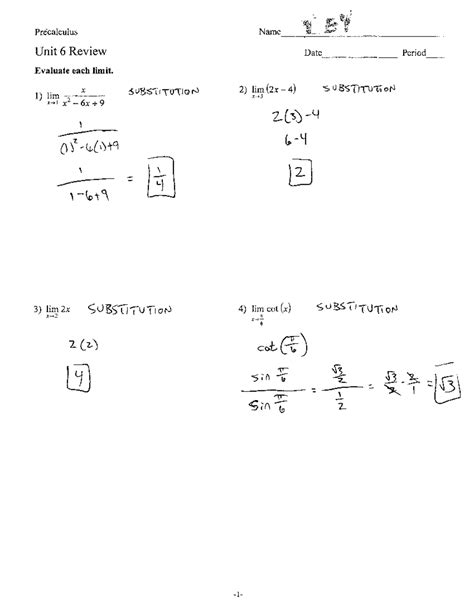 Precalculus
Name
Unit 6 Review
Date Period
Evaluate each limit.
1) lim x→1 x / x² − 6x + 9 SUBSTITUTION
1 / (1)² − 6(1) + 9
1 / 1 − 6 + 9 = 1/4
2) lim x→3 (2x − 4) SUBSTITUTION
2(3) − 4
6 − 4
2
3) lim x→2 2x SUBSTITUTION
2(2)
4
4) lim cot (x) SUBSTITUTION
cot(π/6)
sin π/6 / sin π/6 = √3/2 / 1/2 = √3/2 · 2/1 = √3
-1-